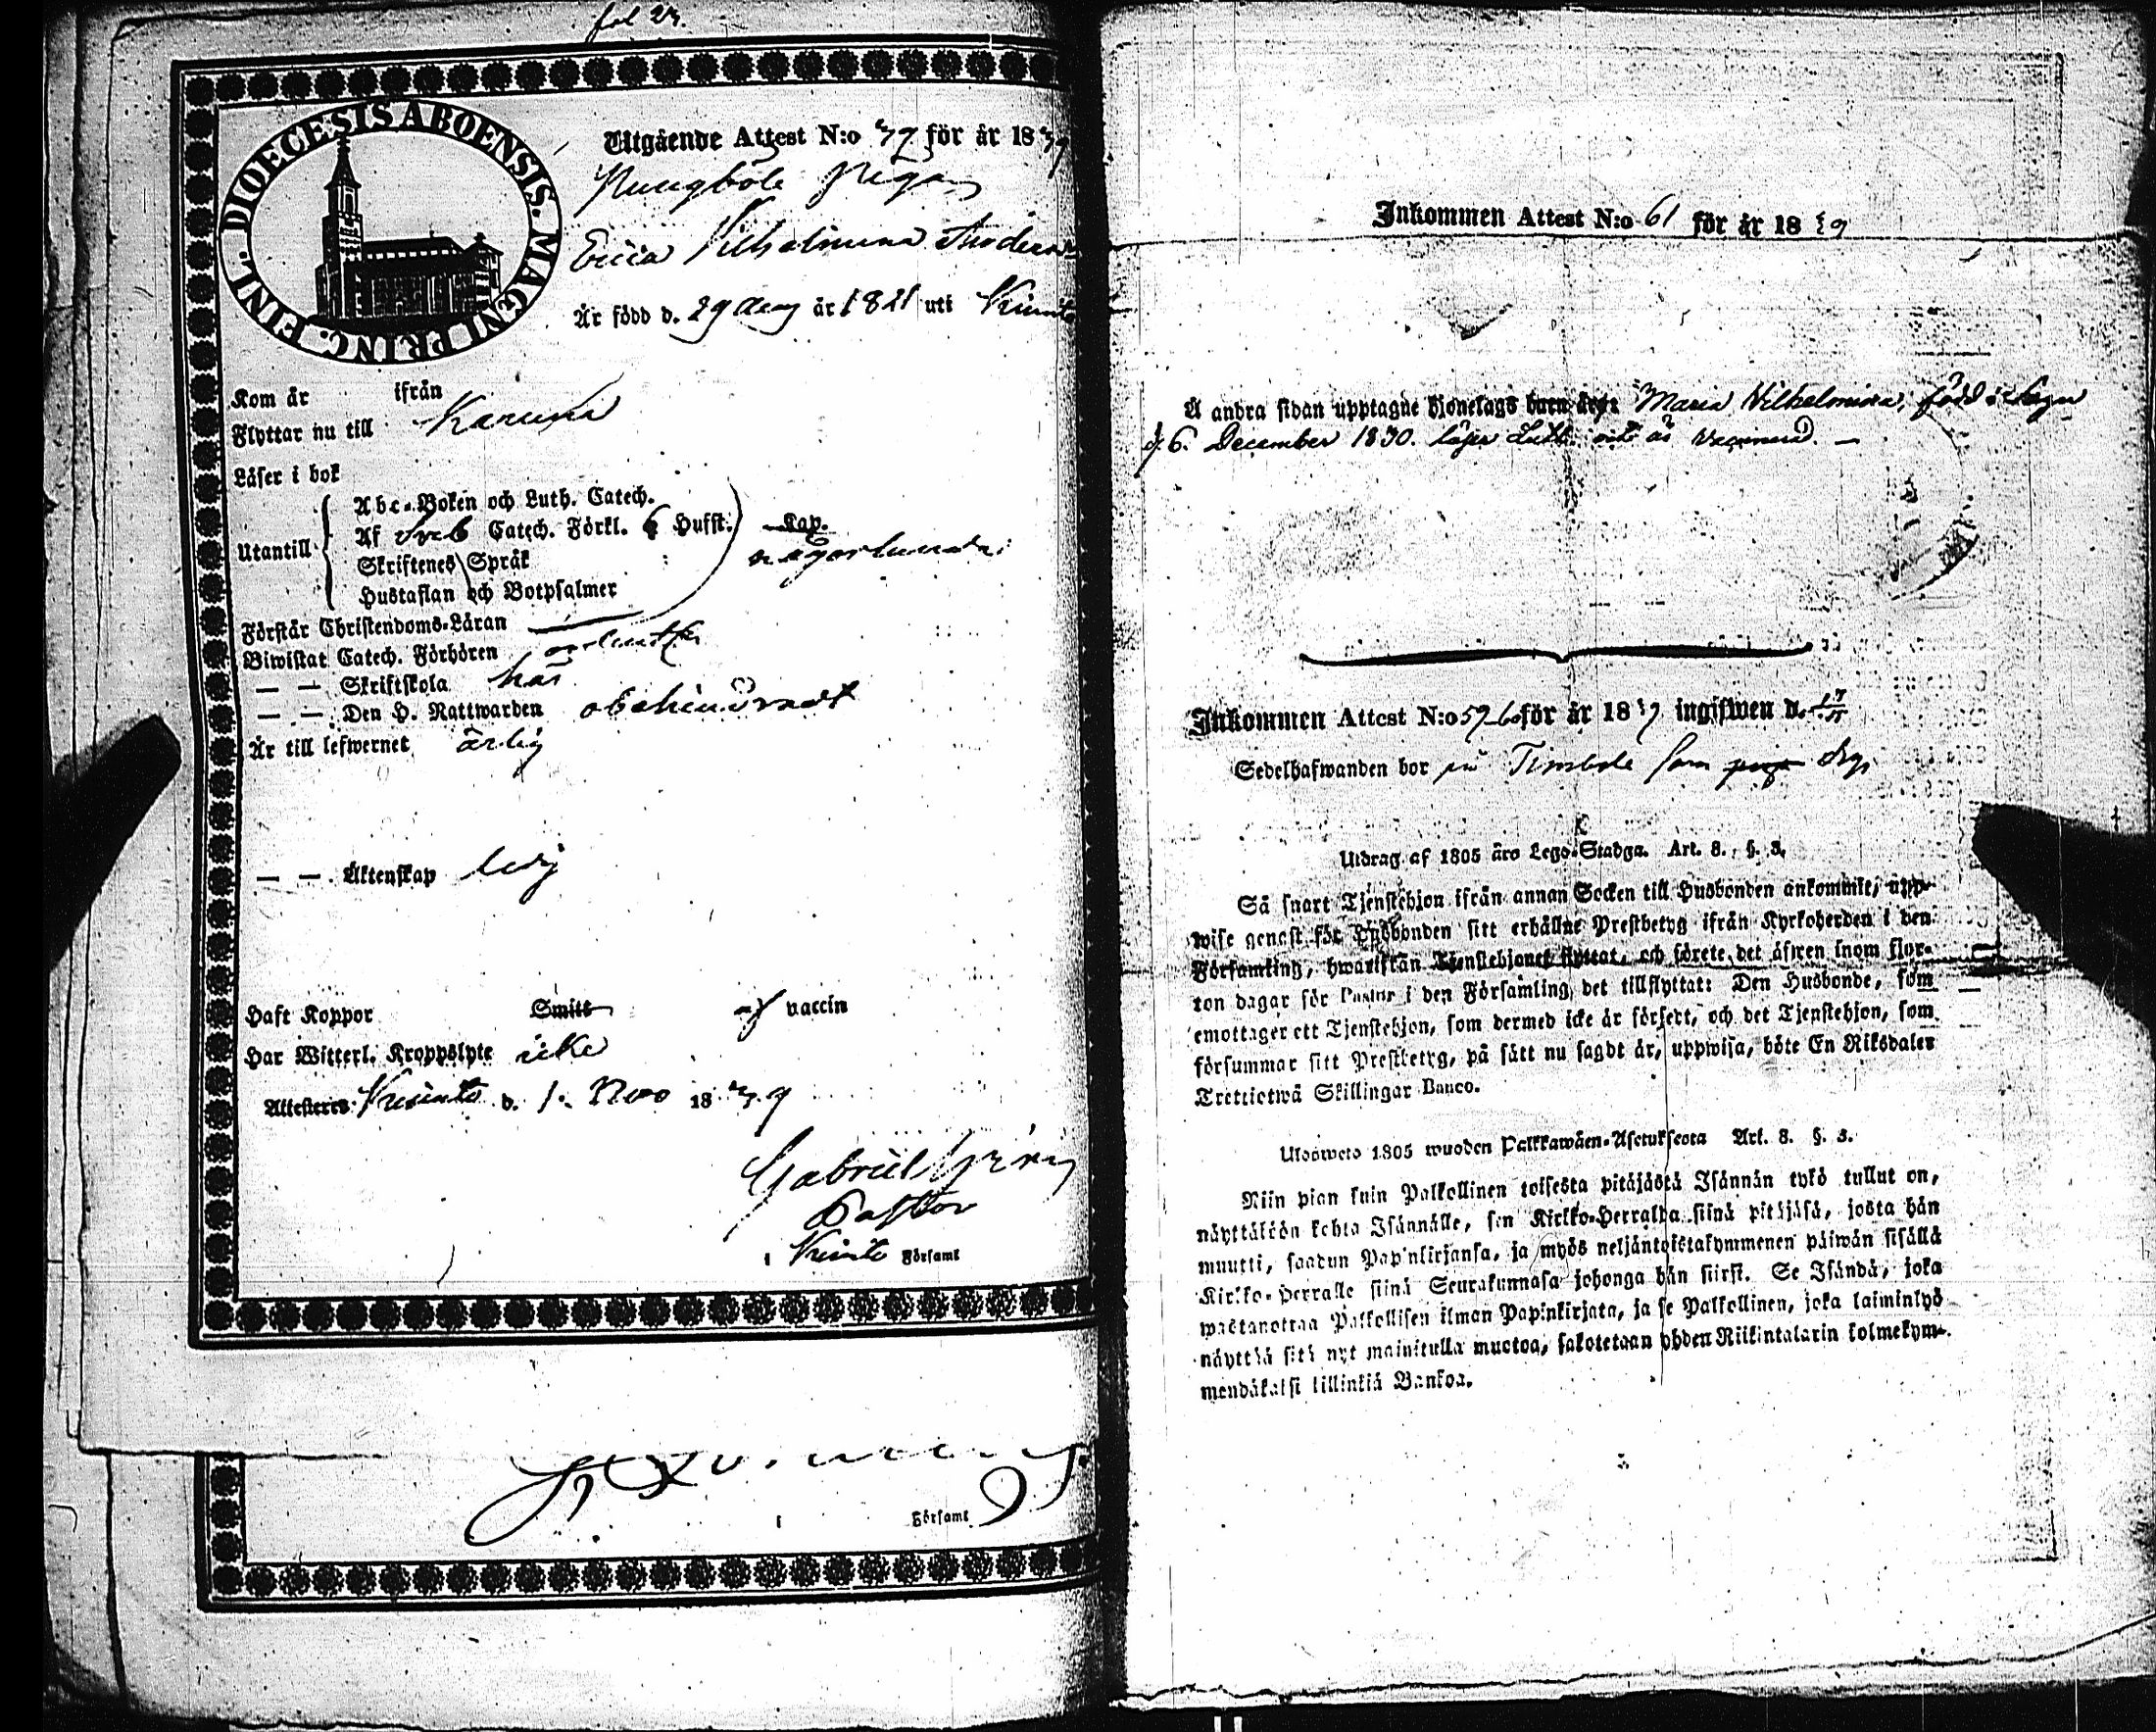 fol 27.
DIOECESIS ABOENSIS. MAGNI PRINC. FINL.
Utgående Attest N:o 37 för år 1839
Pungböle Pigan
Erica Vilhelmina Anders
Är född d. 29 Aug år 1821 uti Kimito
Kom år ifrån
Flyttar nu till Karuna
Läser i bok
Utantill
Abc-Boken och Luth. Catech.
Af Sveb Catech. Förkl. 6 Hufst. Kap.
Skriftenes Språk någorlunda
Hustaflan och Botpsalmer
Förstår Christendoms-Läran
Biwistat Catech. Förhören
— — Skriftskola här
— — Den H. Nattwarden obehindradt
Är till lefwernet ärlig
— — Äktenskap ledig
Haft Koppor Smitt af vaccin
Har Witterl. Kroppslyte icke
Attesteres Kimito d. 1. Nov 1839
Gabriel
Pastor
i Kimito Församl
i Församl
Inkommen Attest N:o 61 för år 1839
Å andra sidan upptagne Hjonelags barn äro: Maria Vilhelmina, född i Sagu
d. 6. December 1830. läser Luth. är vaccinerad. —
Inkommen Attest N:o 59 för år 1839 ingifwen d.
Sedelhafwanden bor på Timböle som
Utdrag af 1805 års Lego-Stadga. Art. 8. §. 3.
Så snart Tjenstehjon ifrån annan Socken till Husbonden ankommit, upp-
wise genast för Husbonden sitt erhållne Prestbetyg ifrån Kyrkoherden i den
Församling, hwarifrån Tjenstehjonet flyttat, och förete det äfwen inom fjor-
ton dagar för Pastor i den Församling, det tillflyttat: Den Husbonde, som
emottager ett Tjenstehjon, som dermed icke är försedt, och det Tjenstehjon, som
försummar sitt Prestbetyg, på sätt nu sagdt är, uppwisa, böte En Riksdaler
Trettiotwå Skillingar Banco.
Ulosweto 1805 wuoden Palkkawäen-Asetuksesta Art. 8. §. 3.
Niin pian kuin Palkollinen toisesta pitäjästä Isännän tykö tullut on,
näyttäköön kohta Isännälle, sen Kirkko-Herralda siinä pitäjäsä, josta hän
muutti, saadun Papinkirjansa, ja myös neljäntoistakymmenen päiwän sisällä
Kirkko-Herralle siinä Seurakunnasa johonga hän siirsi. Se Isändä, joka
wastanottaa Palkollisen ilman Papinkirjata, ja se Palkollinen, joka laiminlyö
näyttää sitä nyt mainitulla muotoa, sakotetaan yhden Riikintalarin kolmekym-
mendäkaksi killinkiä Bankoa.